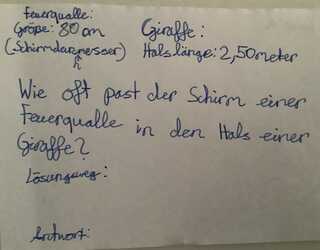 Feuerqualle:
Größe: 80 cm
(Schirmdurmesser)
h
Giraffe:
Halslänge: 2,50 meter
Wie oft past der Schirm einer
Feuerqualle in den Hals einer
Giraffe?
Lösungsweg:
Antwort: